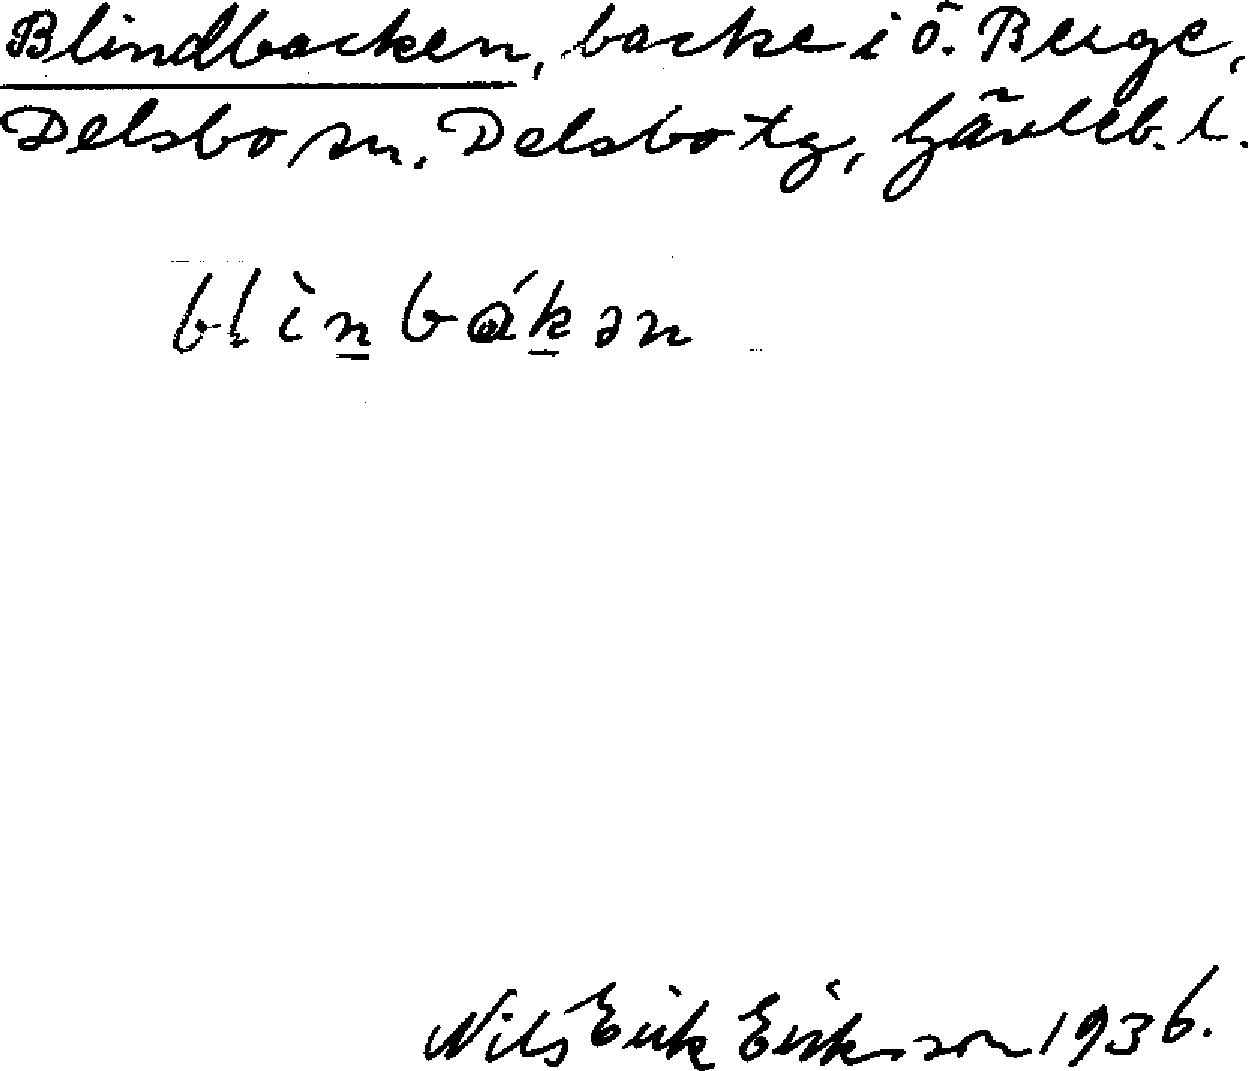 Blindbacken, backe i ö. Berge,
Delsbo sn. Delsbo tg, Gävleb. l.
blìn̲bák̲ən
Nils Erik Eriksson 1936.